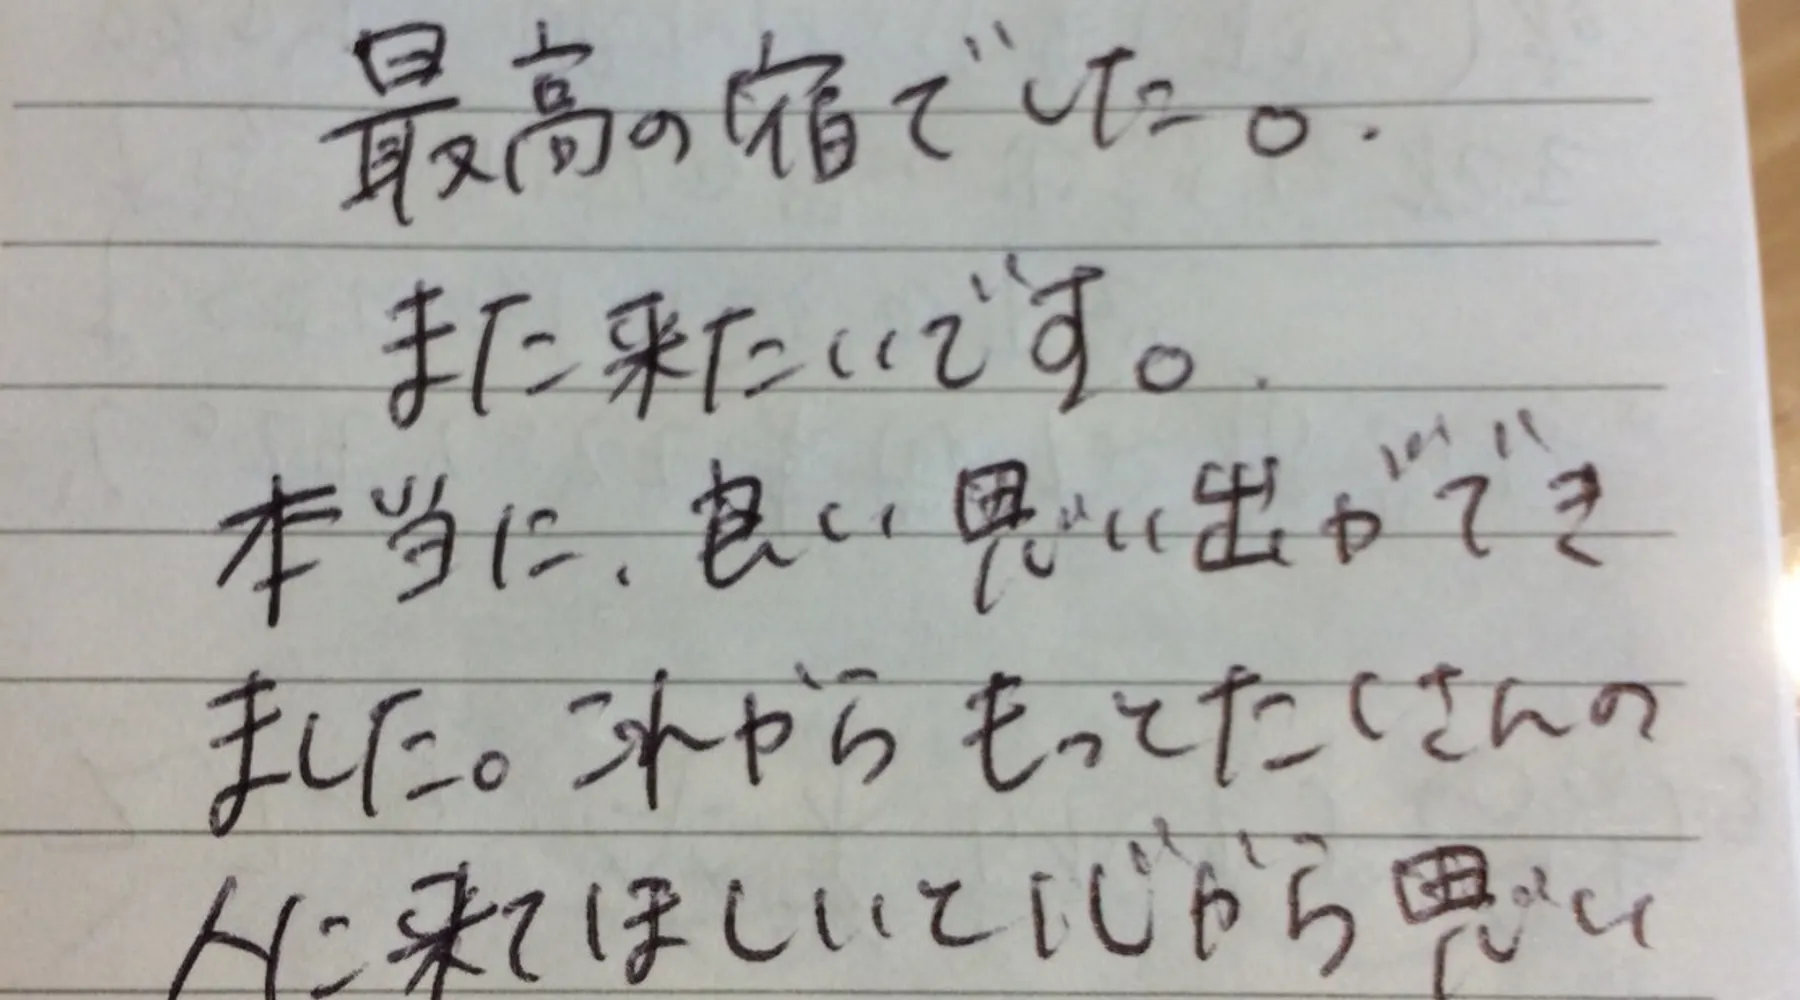 最高の宿でした。
また来たいです。
本当に、良い思い出ができ
ました。これからもってたくさんの
人に来てほしいと心から思い